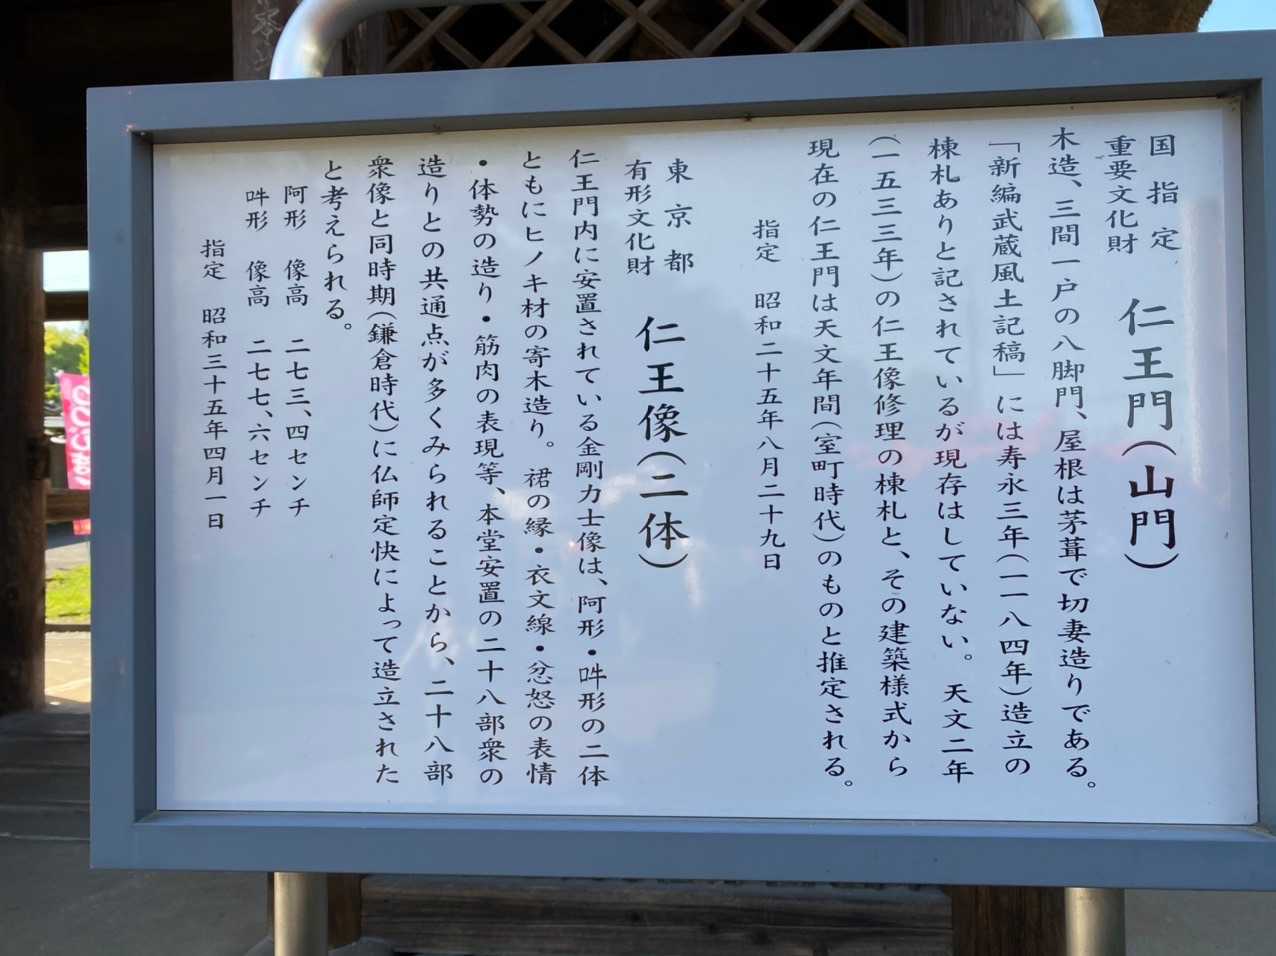 国指定
重要文化財
仁王門(山門)
木造、三間一戸の八脚門、屋根は茅葺で切妻造りである。
「新編武蔵風土記稿」には寿永三年(一一八四年)造立の
棟札ありと記されているが現存はしていない。天文二年
(一五三三年)の仁王像修理の棟札と、その建築様式から
現在の仁王門は天文年間(室町時代)のものと推定される。
指定 昭和二十五年八月二十九日
東京都
有形文化財
仁王像(二体)
仁王門内に安置されている金剛力士像は、阿形・吽形の二体
ともにヒノキ材の寄木造り。裙の縁・衣文線・忿怒の表情
・体勢の造り・筋肉の表現等、本堂安置の二十八部衆の
造りとの共通点が多くみられることから、二十八部
衆像と同時期(鎌倉時代)に仏師定快によって造立された
と考えられる。
阿形 像高 二七三、四センチ
吽形 像高 二七七、六センチ
指定 昭和三十五年四月一日